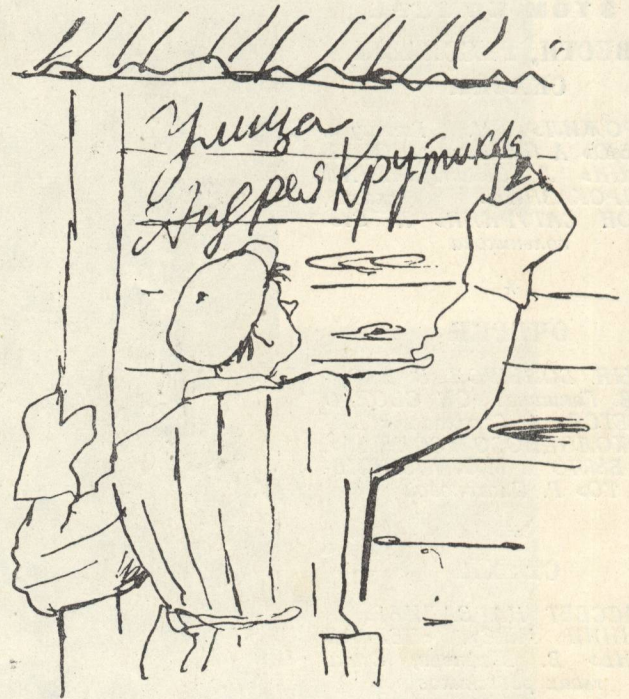 Улица
Андрея Крутикова